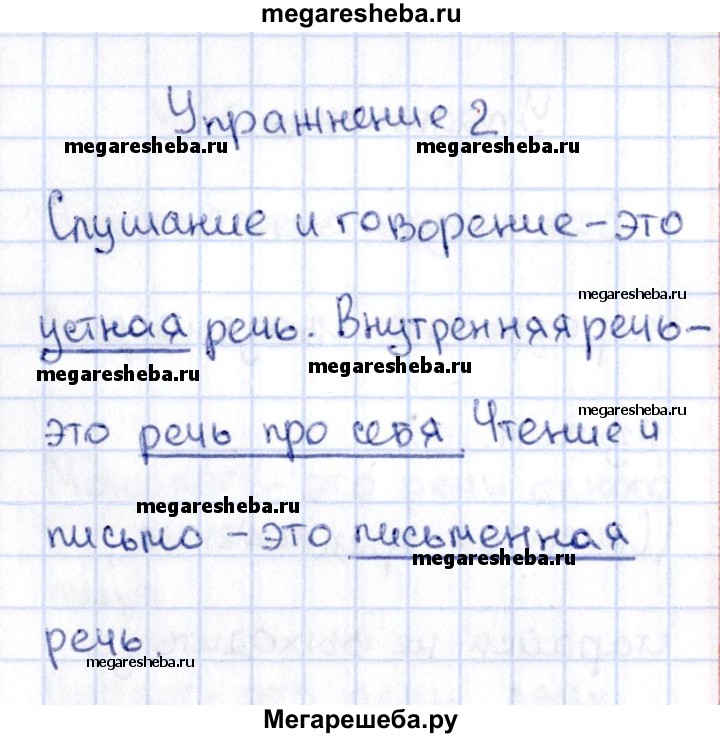 megaresheba.ru
Упражнение 2
megaresheba.ru megaresheba.ru
Слушание и говорение – это
megaresheba.ru
устная речь. Внутренняя речь –
megaresheba.ru megaresheba.ru
megaresheba.ru
это речь про себя. Чтение и
megaresheba.ru
письмо – это письменная
megaresheba.ru
речь.
megaresheba.ru
Мегарешеба.ру